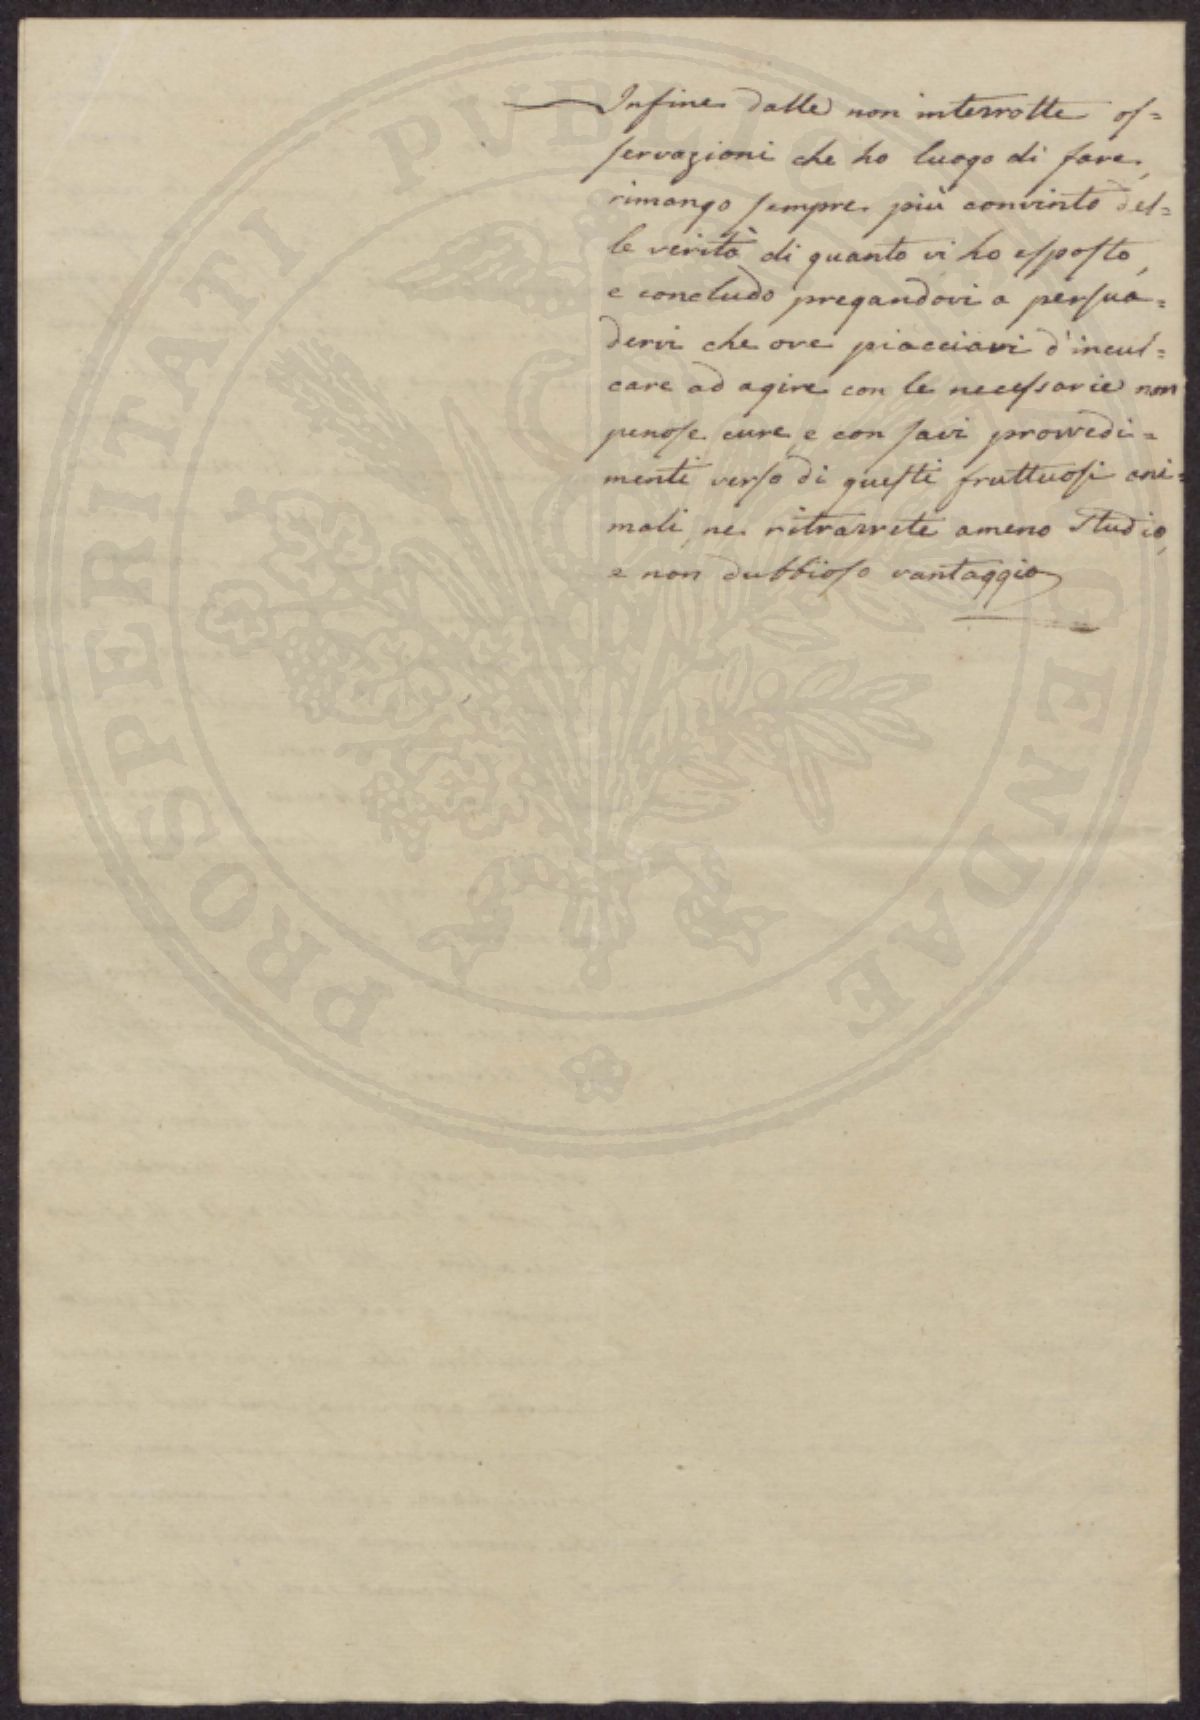 Infine dalle non interrotte os=
servazioni che ho luogo di fare,
rimango sempre più convinto del=
le verità di quanto vi ho esposto,
e concludo pregandovi a persua=
dervi che ove piacciavi d'incul=
care ad agire con le necessarie non
penose cure, e con savi provvedi=
menti verso di questi fruttuosi ani=
mali, ne ritrarrete ameno Studio,
e non dubbioso vantaggio
PROSPERITATI PVBLICAE AVGENDAE